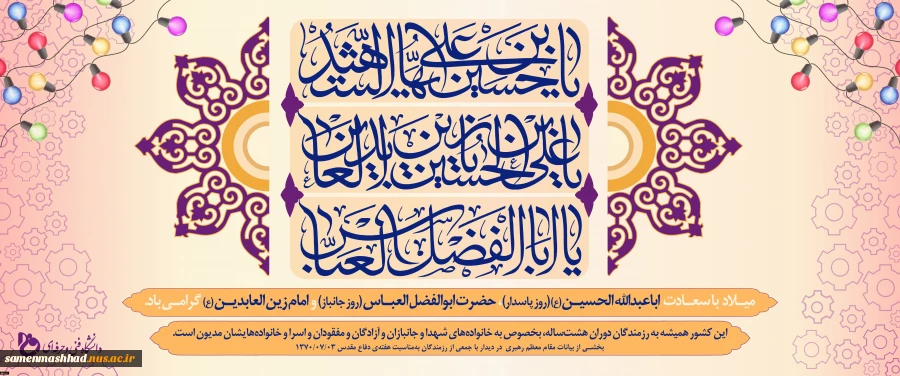 یا حسین بن علی ایها الشهید
یا علی بن الحسین یا زین العابدین
یا اباالفضل العباس
میلاد باسعادت اباعبدالله الحسین(ع)(روز پاسدار) حضرت ابوالفضل العباس(روز جانباز) و امام زین العابدین(ع) گرامی باد.
این کشور همیشه به رزمندگان دوران هشت‌ساله، بخصوص به خانواده‌های شهدا و جانبازان و آزادگان و مفقودان و اسرا و خانواده‌هایشان مدیون است.
بخشی از بیانات مقام معظم رهبری در دیدار با جمعی از رزمندگان به‌مناسبت هفته‌ی دفاع مقدس ۱۳۷۰/۰۷/۰۳
samenmashhad.nus.ac.ir